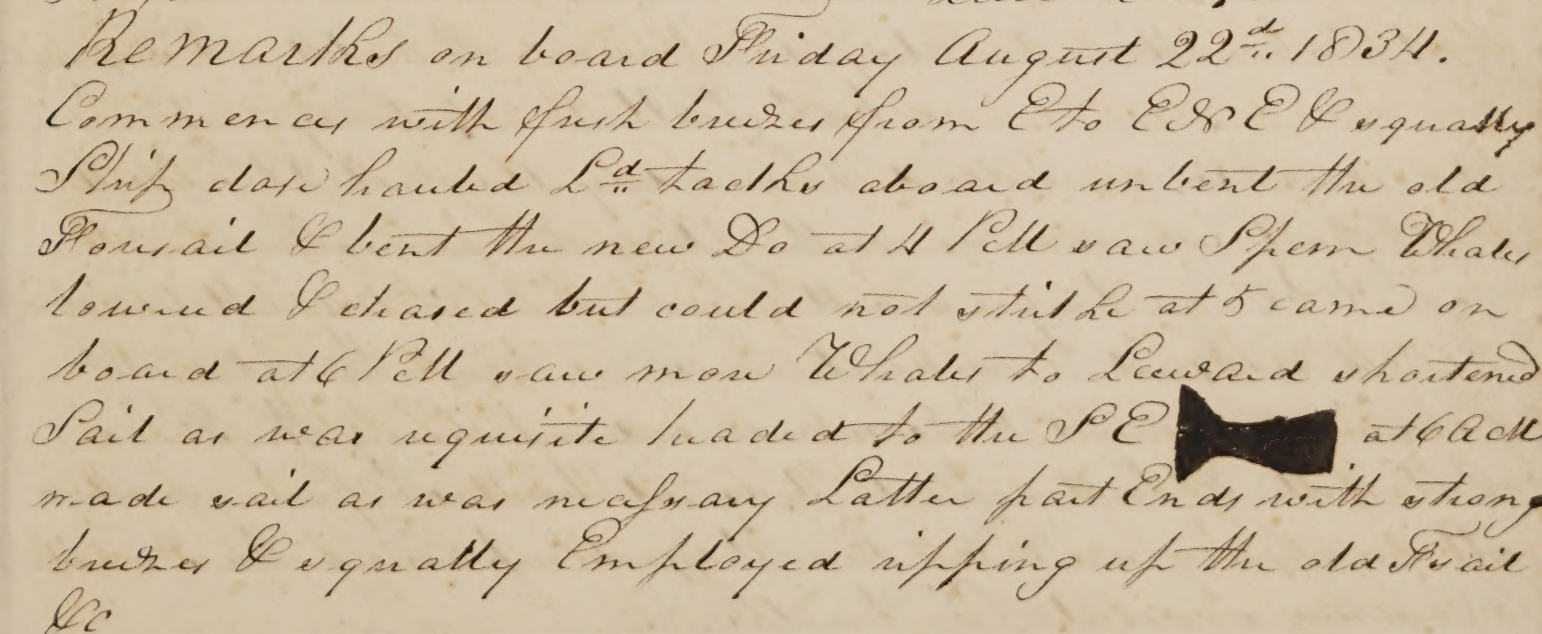 Remarks on board Friday August 22d 1834.
Commences with fresh breezes from E to ENE & squally
Ship close hauled Ld tacks aboard unbent the old
Foresail & bent the new Do at 4 PM saw Sperm Whales
lowered & chased but could not strike at 5 came on
board at 6 PM saw more Whales to Leeward shortened
Sail as was requisite headed to the SE at 6 AM
made sail as was necessary Latter part Ends with strong
breezes & squally Employed ripping up the old Fsail
&c